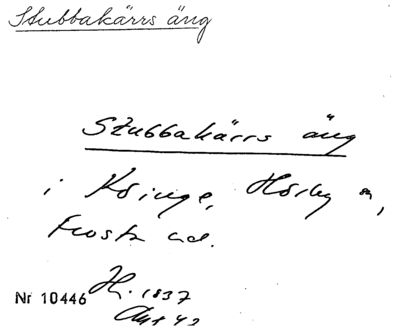 Stubbakärrs äng
Stubbakärrs äng
i Köinge, Hörby sn,
Frosta hd.
Nr 10446 H. 1837
Akt 42